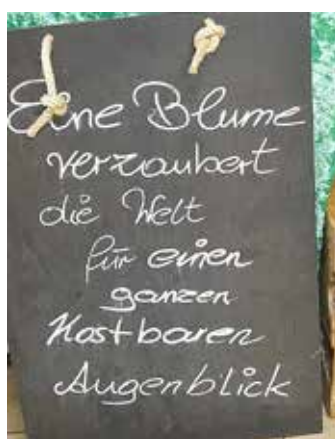 Eine Blume
verzaubert
die Welt
für einen
ganzen
Kostbaren
Augenblick